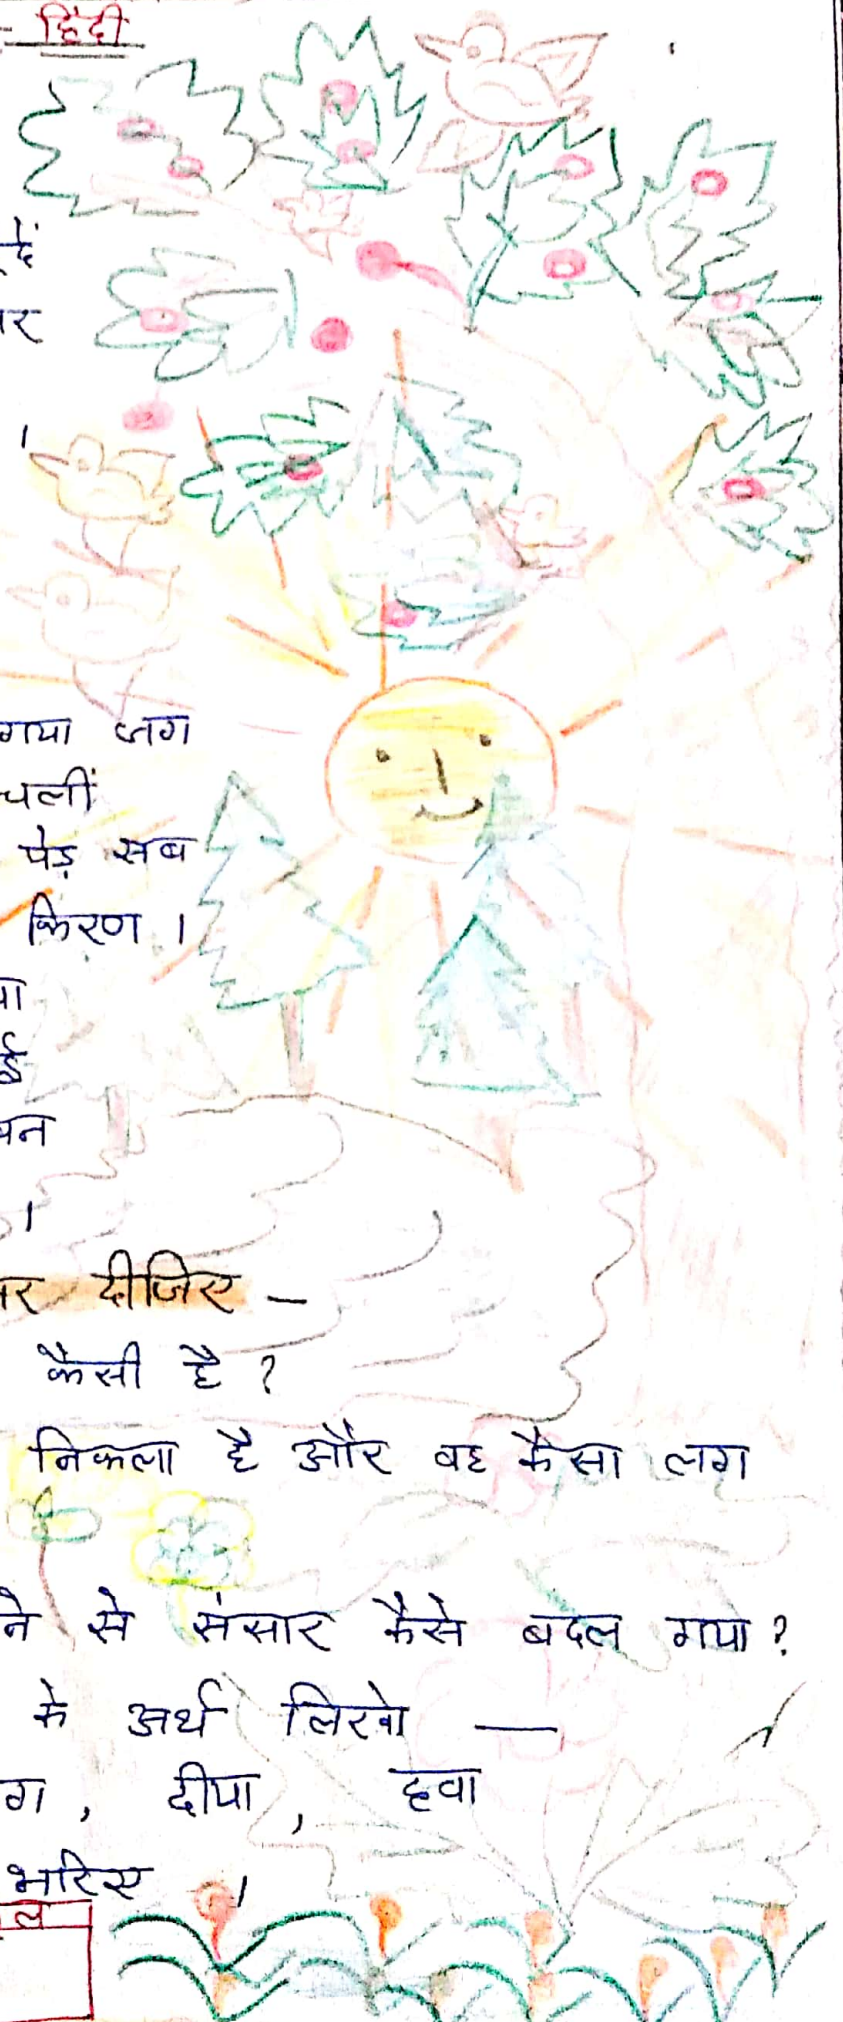 - हिंदी
दें
र
।
गया जग
चलीं
पेड़ सब
किरण ।
या
ई
वन
।
र दीजिए –
कैसी है ?
निकला है और वह कैसा लग
ने से संसार कैसे बदल गया ?
के अर्थ लिखो —
ग , दीया , हवा
भरिए ।
ल